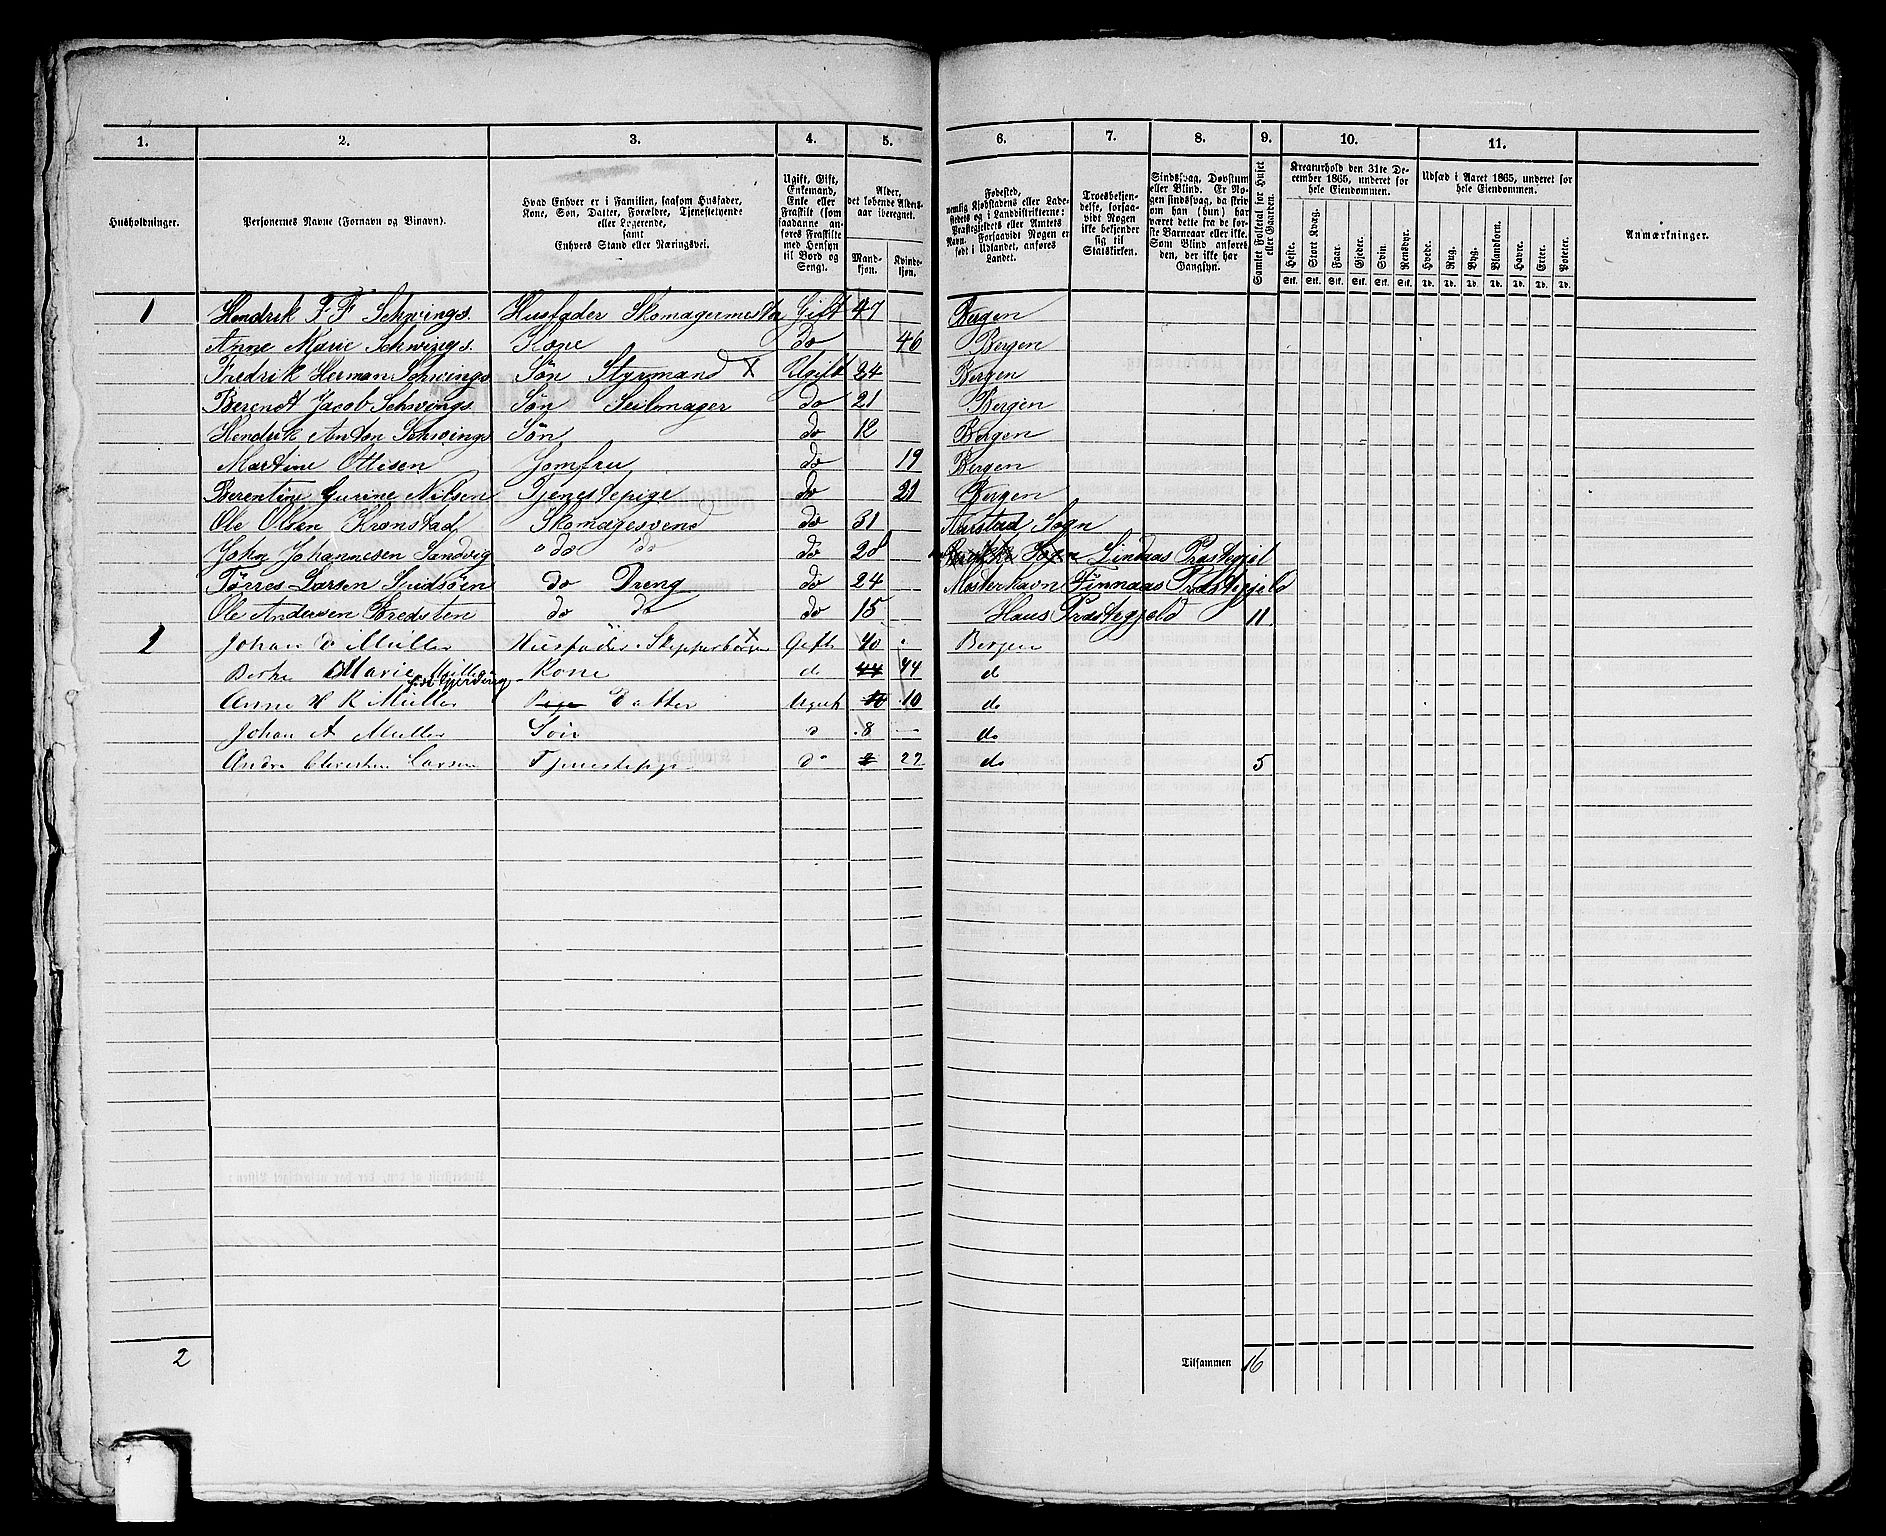 1. 2. 3. 4. 5. 6. 7. 8. 9. 10. 11.
Husholdninger.
Personernes Navne (Fornavn og Binavn).
Hvad Enhver er i Familien, saasom Husfader,
Kone, Søn, Datter, Forældre, Tjenestetyende
eller Logerende,
samt
Enhvers Stand eller Næringsvei.
Ugift, Gift,
Enkemand,
Enke eller
Fraskilt (som
saadanne an-
føres Fraskilte
med Hensyn
til Bord og
Seng).
Alder,
det løbende Alders-
aar iberegnet.
Mand-
kjøn.
Kvinde-
kjøn.
Fødested,
nemlig Kjøbstadens eller Lade-
stedets og i Landdistrikterne:
Præstegjeldets eller Amtets
Navn. Forsaavidt Nogen er
født i Udlandet, anføres
Landet.
Troesbekjen-
delse, forsaa-
vidt Nogen
ikke bekjender
sig til
Statskirken.
Sindssvag, Døvstum
eller Blind. Er No-
gen sindssvag, da skriv
om han (hun) har
været dette fra de før-
ste Barneaar eller ikke.
Som Blind anføres
den, der ikke har
Gangsyn.
Samlet Folketal for Huset
eller Gaarden.
Kreaturhold den 31te De-
cember 1865, underet for
hele Eiendommen.
Heste. Stort Kvæg. Faar. Gjeder. Svin. Rensdyr.
Stk. Stk. Stk. Stk. Stk. Stk.
Udsæd i Aaret 1865, underet for
hele Eiendommen.
Hvede. Rug. Byg. Blandkorn. Havre. Erter. Poteter.
Td. Td. Td. Td. Td. Td. Td.
Anmærkninger.
1 Hendrik P. F Schwings. Husfader Skomagermester Gift 47 Bergen
Anne Marie Schwings. Kone do 46 Bergen
Fredrik Herman Schwings Søn Styrmand X Ugift 24 Bergen
Berendt Jacob Schwings. Søn Seilmager do 21 Bergen
Hendrik Anton Schwings Søn do 12 Bergen
Martine Ottisen Jomfru do 19 Bergen
Berentine Gurine Nilsen Tjenestepige do 21 Bergen
Ole Olsen Kronstad Skomagesvend do 31 Aarstad Sogn
John Johannesen Sandvig do do do 28 Sogn Lindaas Præstegjel
Tøeres Larsen do Dreng do 24 Mosterhavn Finnaas Præstegjeld
Ole Andersen Bredsten do do do 15 Haus Præstegjeld 11
2 Johan Müller Husfader Skipperborger X Gift 40 Bergen
Berthe Marie Müller Kone d 44 44 d
Anne H K Müller Pige Datter Ugift 10 10 do
Johan A Müller Søn d 8 do
Andrea Christine Larsen Tjenestepige do 2 22 do 5
2
Tilsammen 16